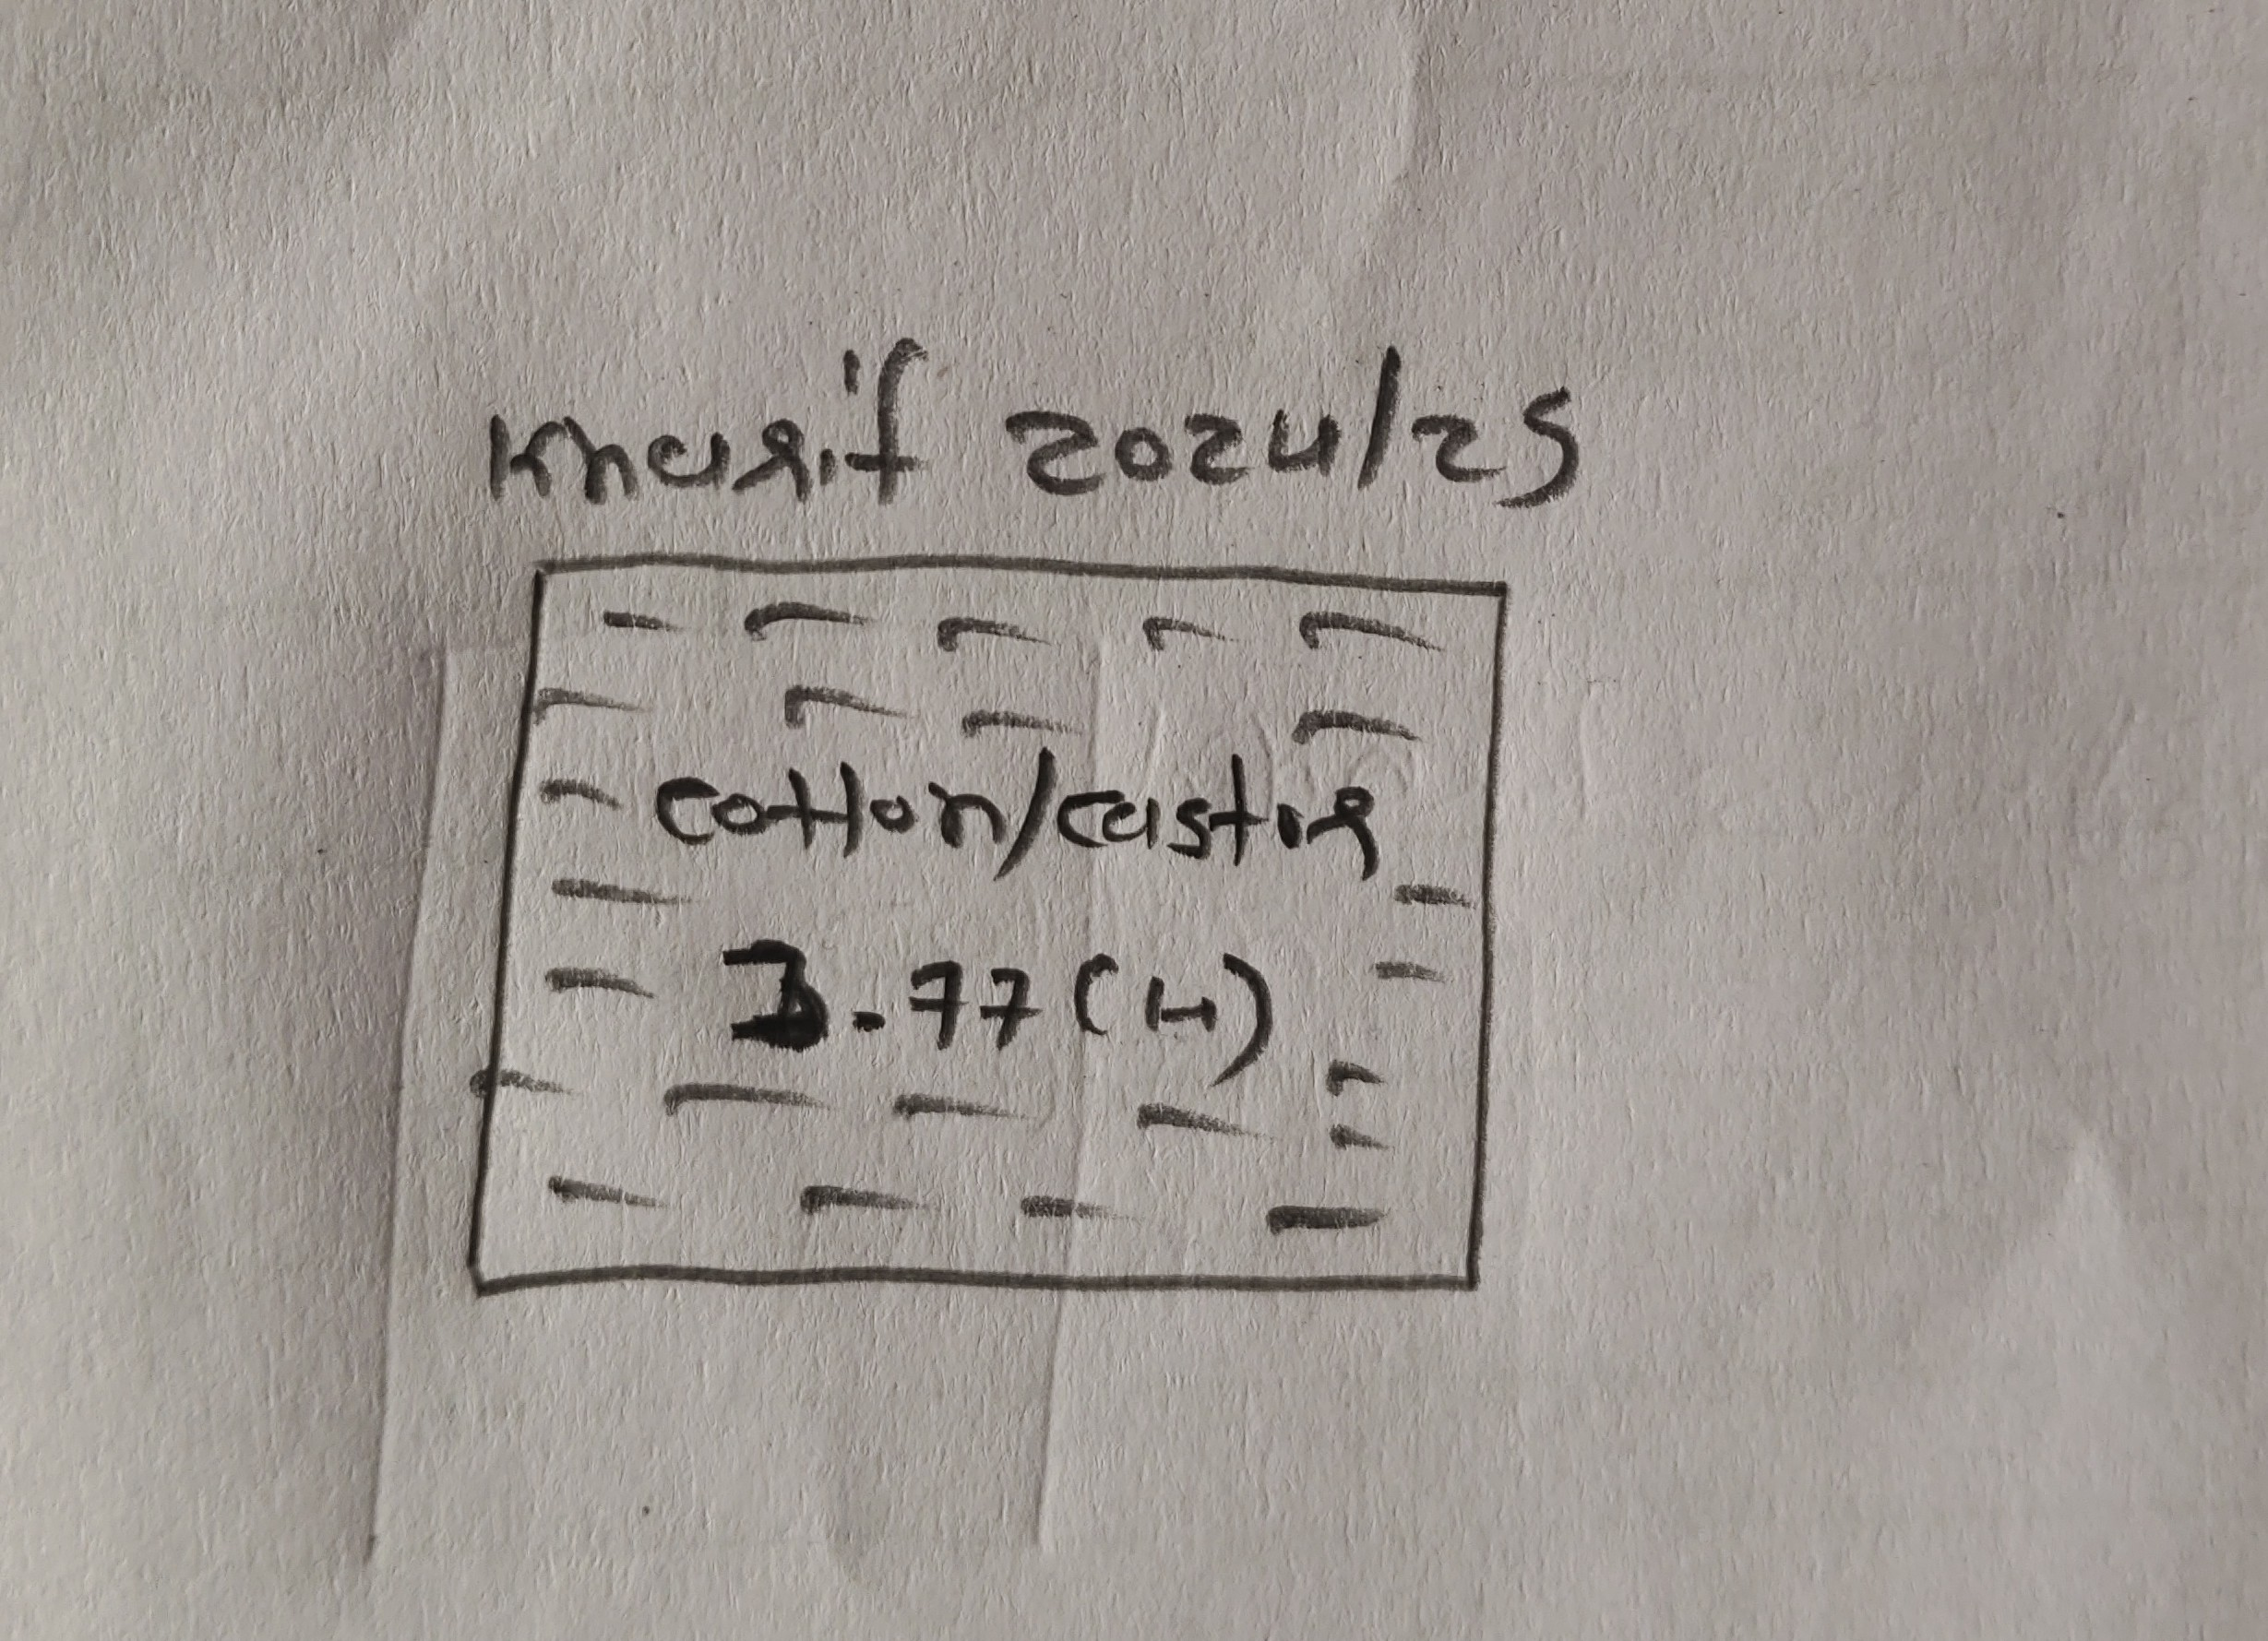 Kharif 2024/25
cotton/castor
3.77 (H)